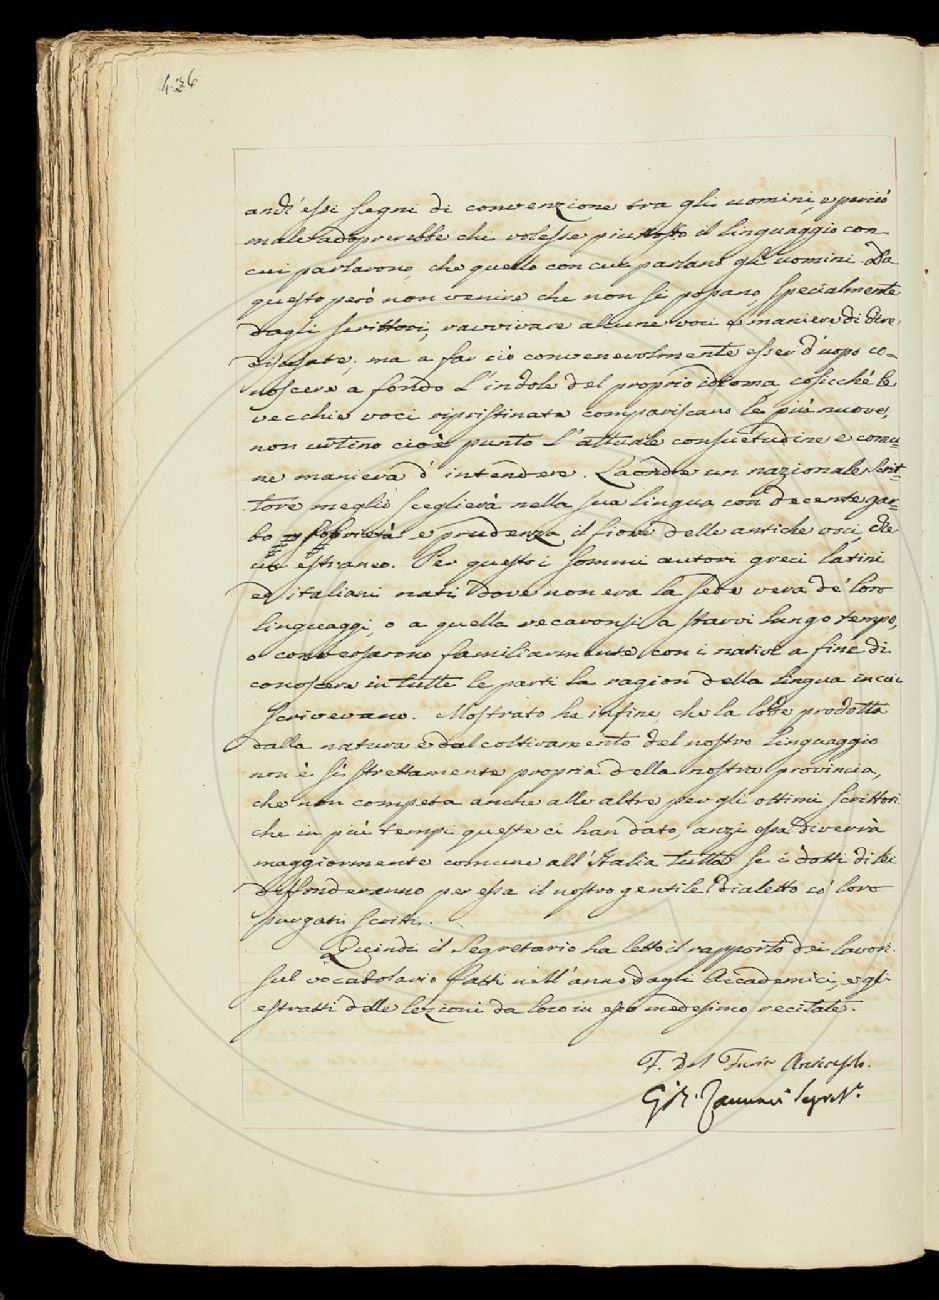 426
anch'essi segni di convenzione tra gli uomini, e perciò
male adoprerebbe chi volesse piuttosto il linguaggio con
cui parlarono, che quello con cui parlano gli uomini. Da
questo però non venire che non si possano, specialmente
dagli scrittori, ravvivare alcune voci e maniere di dire
disusate; ma a far ciò convenevolmente esser d'uopo co-
noscere a fondo l'indole del proprio idioma, cosicché le
vecchie voci ripristinate compariscano le più nuove,
non urtino cioè punto l'attuale consuetudine e comu-
ne maniera d'intendere. Laonde un nazionale scrit-
tore meglio sceglierà nella sua lingua con decente gar-
bo proprietà e prudenza il fiore delle antiche voci che
un estraneo. Per questo i sommi autori greci latini
ed italiani nati dove non era la sede vera de' loro
linguaggi, o a quella recaronsi a starvi lungo tempo,
o conversarono familiarmente con i nativi a fine di
conoscere in tutte le parti la ragion della lingua in cui
scrivevano. Mostrato ha infine che la lode prodotta
dalla natura e dal coltivamento del nostro linguaggio
non è sì strettamente propria della nostra provincia,
che non competa anche alle altre per gli ottimi scrittori
che in più tempi queste ci han dato, anzi essa diverrà
maggiormente comune all'Italia tutta se i dotti di lei
diffonderanno per essa il nostro gentile dialetto co' loro
purgati scritti.
Quindi il Segretario ha letto il rapporto dei lavori
sul vocabolario fatti nell'anno dagli Accademici, e gli
estratti delle lezioni da loro in esso medesimo recitate.
F. Del Furia Arciconsolo.
G. B. Zannoni Segret.